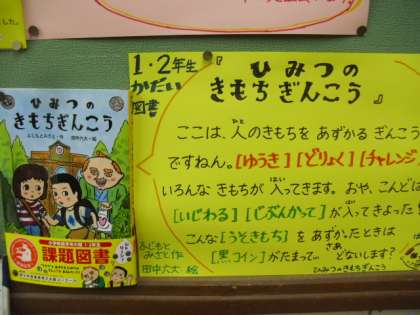 ひみつの
きもちぎんこう
ふじもとみさと・作
田中六大・絵
課題図書
1・2年生
かだい
図書
『ひみつの
きもちぎんこう』
ここは、人のきもちを あずかる ぎんこう
ひと
ですねん。[ゆうき][どりょく][チャレンジ
いろんな きもちが 入ってきます。おや、こんどは
はい
[いじわる][じぶんかって]が入ってきよった!
はい
こんな[うそきもち]を あずかったときは
[黒コイン]がたまって… さあ、どないします?
ふじもと
みさと作
田中六大 絵
ひみつのきもちぎんこう